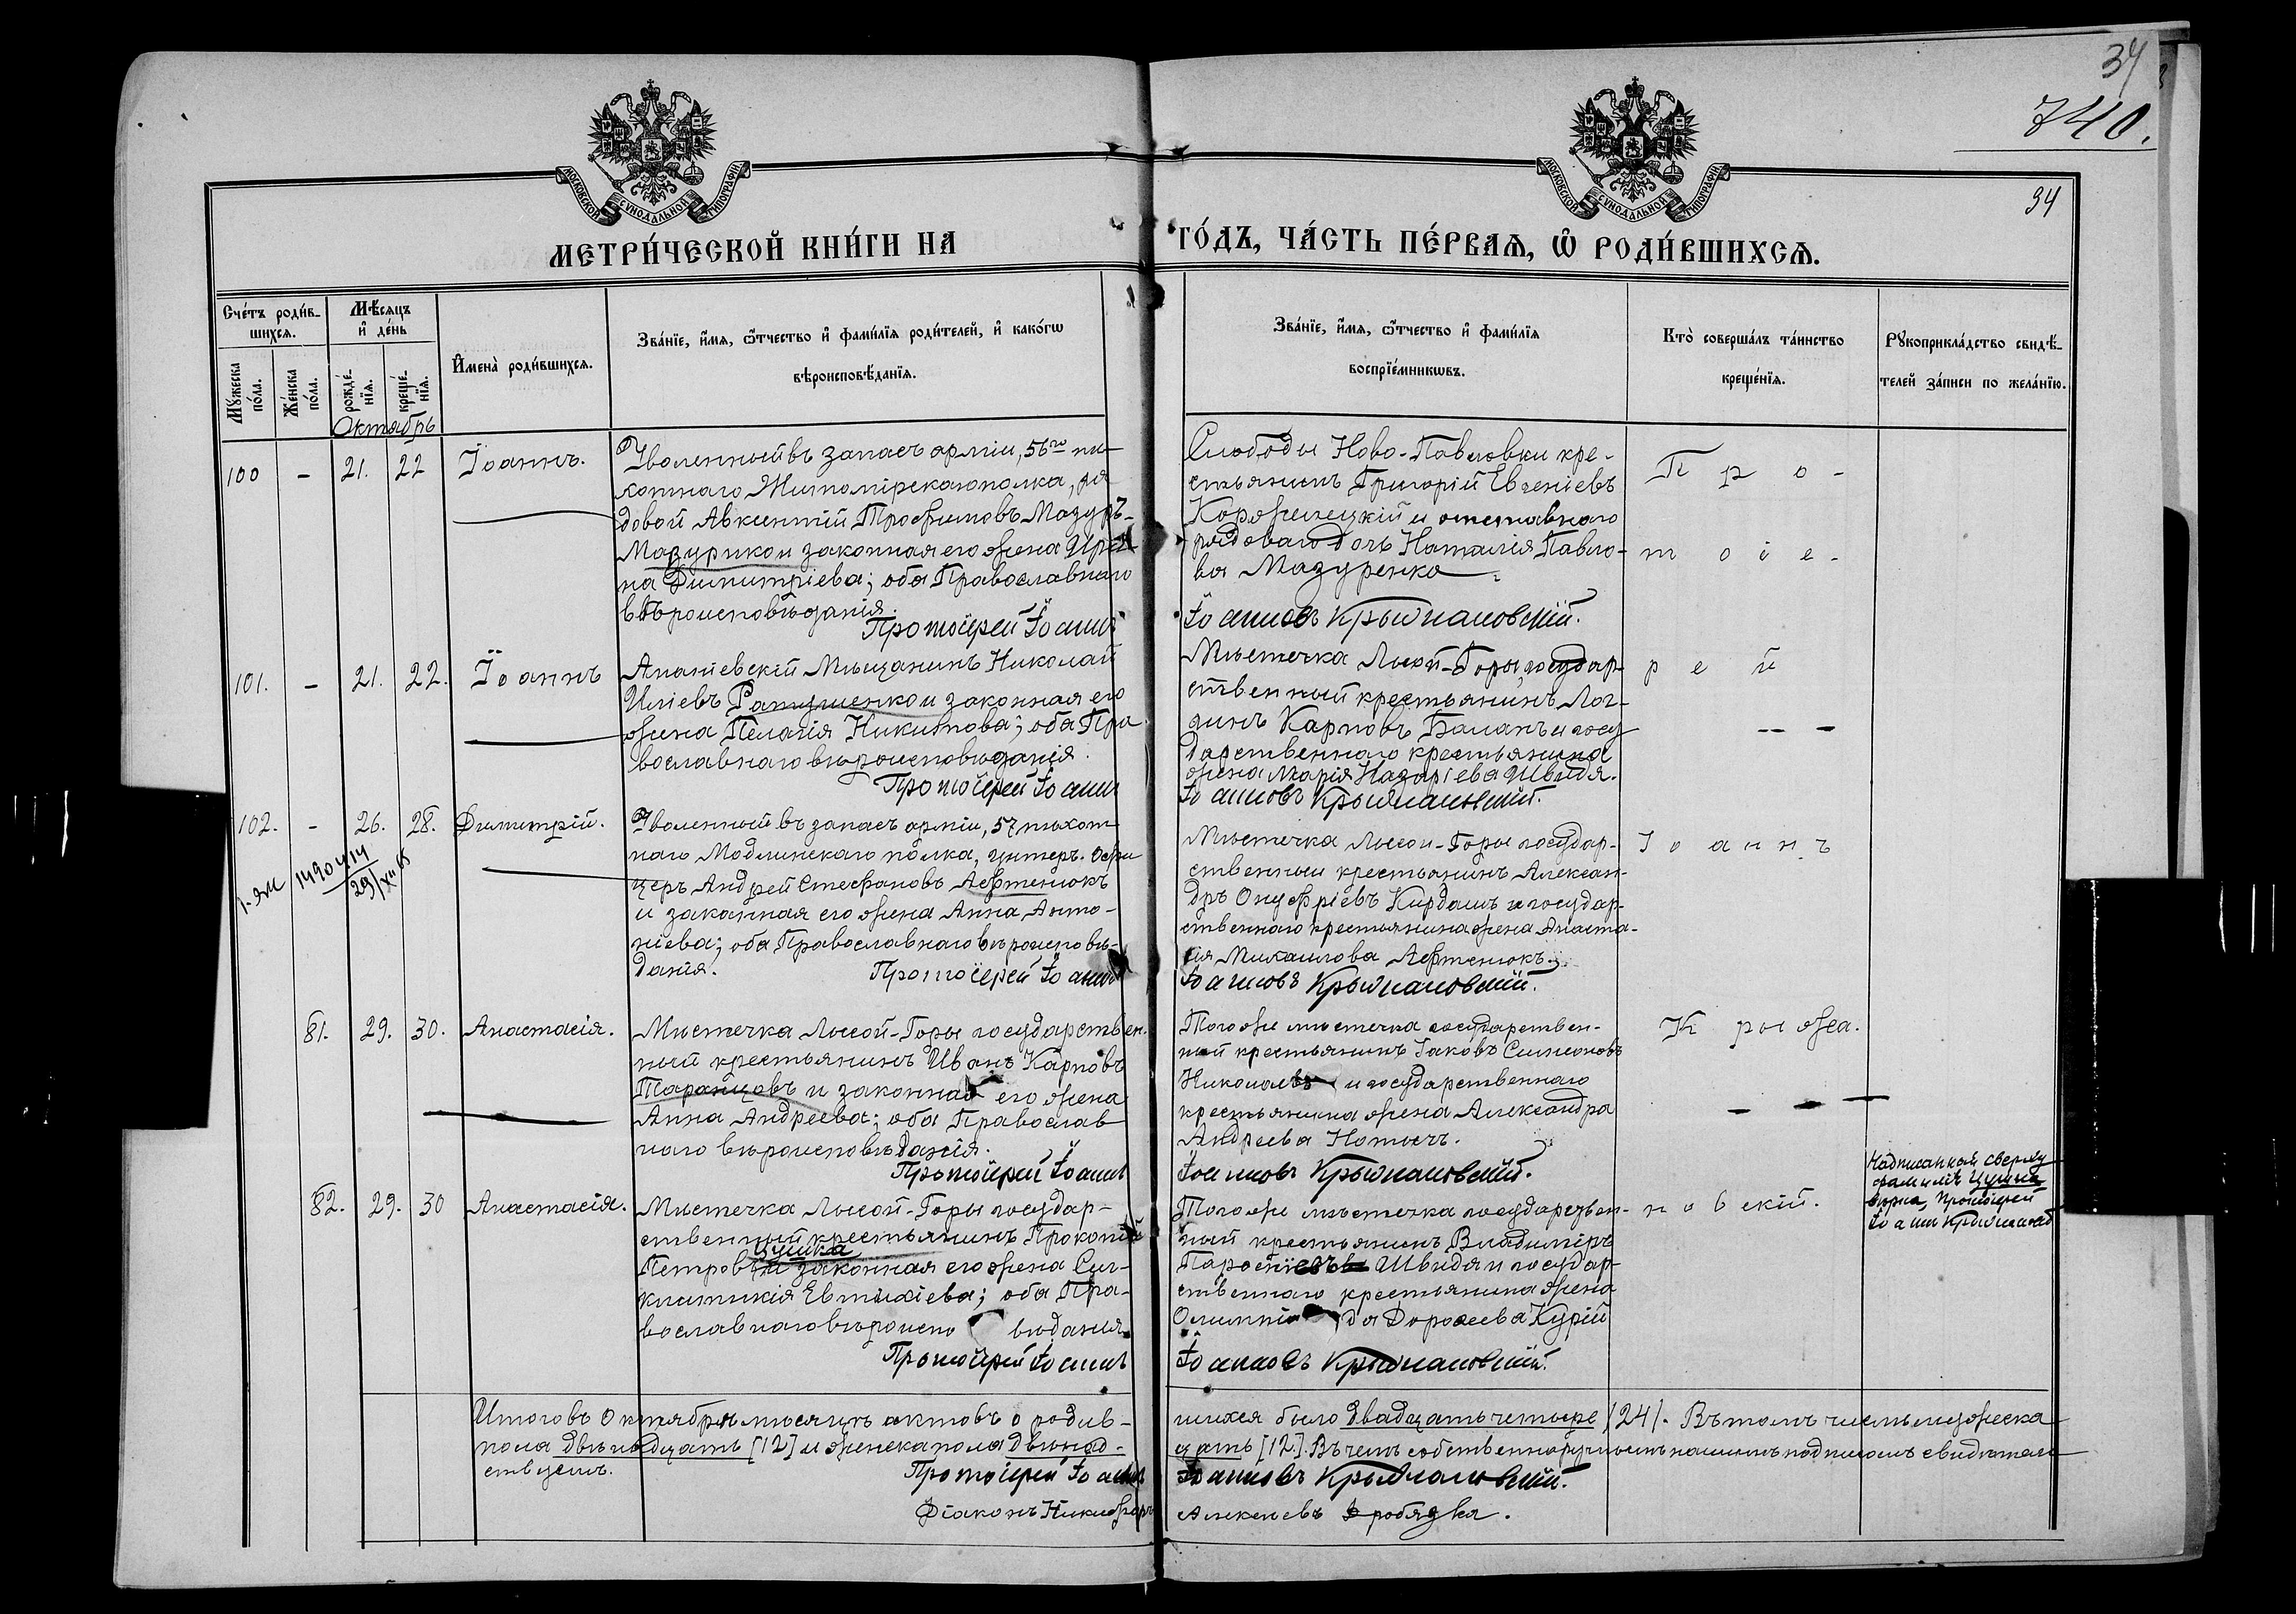 34
740.
34
МОСКОВСКОЙ СУНОДАЛЬНОЙ ТИПОГРАФІИ
МОСКОВСКОЙ СУНОДАЛЬНОЙ ТИПОГРАФІИ
МЕТРИ́ЧЕСКОЙ КНИ́ГИ НА
ГО́ДЪ, ЧА́СТЬ ПЕ́РВАѦ, Ѡ҆ РОДИ́ВШИХСѦ.
Сче́тъ роди́в-
шихся.
Мꙋ́жеска по́ла.
Же́нска по́ла.
Мѣ́сяцъ и҆ де́нь
рожде́-
нїя.
креще́-
нїя.
И҆мена̀ роди́вшихся.
Зва́нїе, и҆́мя, ѻ҆́тчество и҆ фами́лїя роди́телей, и҆ како́гѡ
вѣроисповѣ́данїя.
Зва́нїе, и҆́мя, ѻ҆́тчество и҆ фами́лїя
воспрїе́мникѡвъ.
Кто̀ соверша́лъ та́инство
креще́нїя.
Рꙋкоприкла́дство свидѣ́-
телей за́писи по жела́нїю.
Октябрь
100 – 21. 22 Іоаннъ.
Уволенный въ запасъ арміи, 56го пѣ-
хотнаго Житомірскаго полка, ря
довой Авксентій Трофимовъ Мазуръ-
Мазурик и законная его жена Ири-
на Димитріева; оба Православнаго
вѣроисповѣданія.
Протоіерей Іоаннъ
Слободы Ново-Павловки кре-
стьянинъ Григорій Евгеніевъ
и отставного
рядоваго дочь Наталія Павло-
ва Мазуренко.
Іоанновъ Крыжановскій.
Про-
тоіе-
101. – 21. 22. Іоаннъ
Ананіевскій Мѣщанинъ Николай
Иліевъ Ратушенко и законная его
жена Пелагія Никитова; оба Пра
вославнаго вѣроисповѣданія.
Протоіерей Іоаннъ
Мѣстечка Лысой-Горы, государ-
ственный крестьянинъ Лог-
гинъ Карповъ и госу
дарственнаго крестьянина
жена Марія Назаріева Швидя.
Іоанновъ Крыжановскій.
рей
102. – 26. 28. Димитрій.
1490 414
29/XII 65
Уволенный въ запасъ арміи, 57 пѣхот
наго Модлинскаго полка, унтеръ. Офи
церъ Андрей Стефановъ Афтенюкъ
и законная его жена Анна Анто-
ніева; оба Православнаго вѣроисповѣ-
данія.
Протоіерей Іоаннъ
Мѣстечка Лысой-Горы государ-
ственный крестьянинъ Алексан-
дръ Онуфріевъ Кирдашъ и государ-
ственнаго крестьянина жена Анаста-
сія Михаилова Афтенюкъ.
Іоанновъ Крыжановскій.
Іоаннъ
81. 29. 30. Анастасія.
Мѣстечка Лысой-Горы государствен.
ный крестьянинъ Иванъ Карповъ
Таранцовъ и законная его жена
Анна Андреева; оба Православ
наго вѣроисповѣданія.
Протоіерей Іоаннъ
Того же мѣстечка государствен-
ный крестьянинъ Іаковъ Симеоновъ
и государственнаго
крестьянина жена Александра
Андреева
Іоанновъ Крыжановскій.
Крыжа.
82. 29. 30 Анастасія.
Мѣстечка Лысой-Горы государ-
ственный крестьянинъ Прокопій
Цушка
Петровъ и законная его жена Син-
клитикія Евтихіева; оба Пра-
вославнаго вѣроиспо вѣданія.
Протоіерей Іоаннъ
Того же мѣстечка государствен-
ный крестьянинъ Владиміръ
Парфеніевъ Швидя и государ-
ственнаго крестьянина жена
Олимпіада Дорофеева Курій
Іоанновъ Крыжановскій.
новскій.
Надписанная сверху
фамилія Цушка
вѣрна, Протоіерей
Іоаннъ Крыжановс
Итого въ Октябрѣ мѣсяцѣ актовъ о родив-
шихся было двадцать четыре (24). Въ томъ числѣ мужеска
пола двѣнадцать [12] и женска пола двѣнад-
цать [12]. Въ чемъ собственноручнымъ нашимъ подписомъ свидѣтель
ствуемъ.
Протоіерей Іоаннъ
Іоанновъ Крыжановскій.
Діаконъ Никифоръ
Алексіевъ